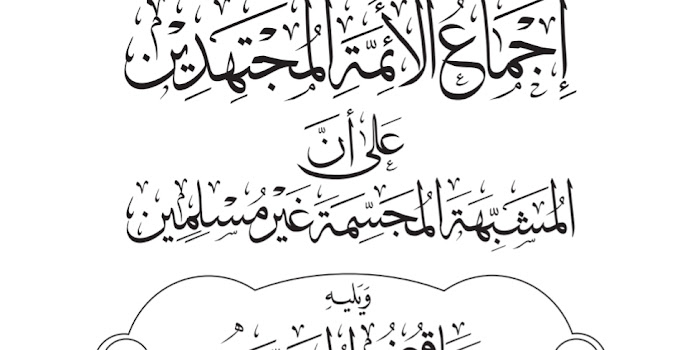 إِجْمَاعُ الأَئِمَّةِ المُجْتَهِدِيْن
عَلى أَنَّ
المُشَبِّهَةَ المُجَسِّمَةَ غَيْرُ مُسْلِمِيْن
وَيَلِيهِ